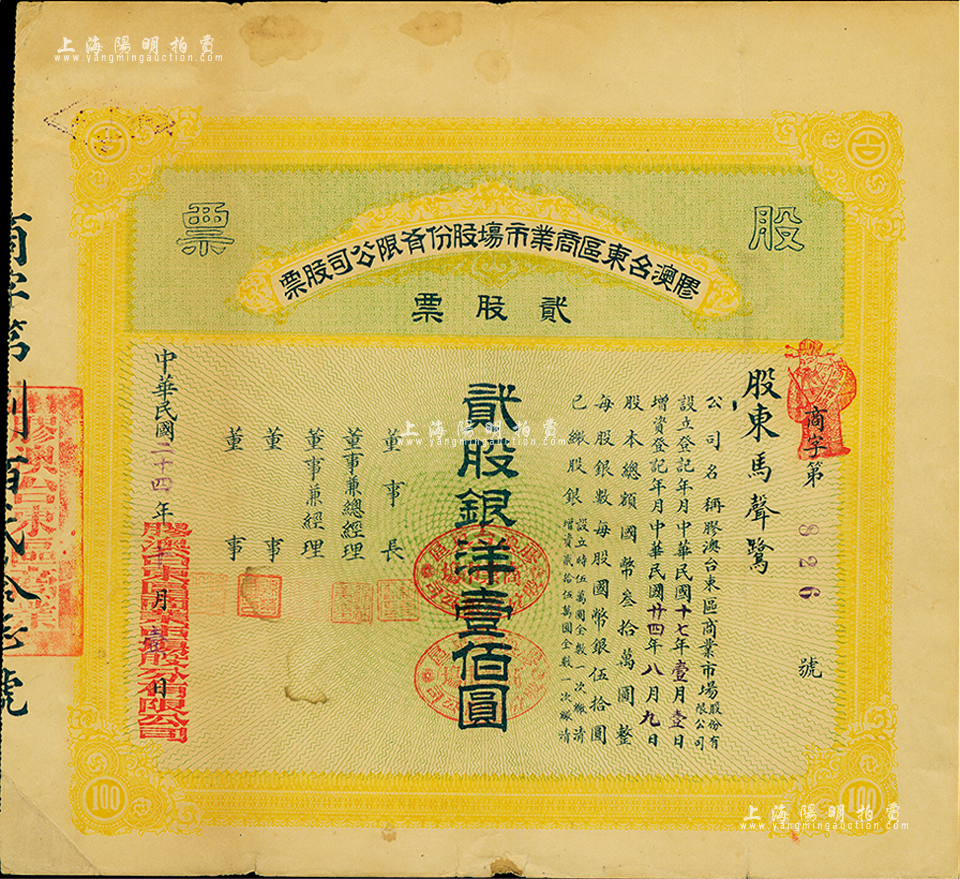 上海陽明拍賣
www.yangmingauction.com
股票
膠澳台東區商業市場股份有限公司股票
貳股票
商字第 826 號
股東馬聲鷺
公司名稱膠澳台東區商業市場股份有限公司
設立登記年月中華民國十七年壹月壹日
增資登記年月中華民國廿四年八月九日
股本總額國幣叁拾萬圓整
每股銀數每股國幣銀伍拾圓
已繳股銀設立時伍萬圓全數一次繳清
增資貳拾伍萬圓全數一次繳清
貳股銀洋壹佰圓
董事長
董事兼總經理
董事兼經理
董事
董事
中華民國二十四年十月壹日
膠澳台東區商業市場股份有限公司
商字第捌百貳拾
號
膠澳台東區商業
100
100
上海陽明拍賣
www.yangmingauction.com
上海陽明拍賣
www.yangmingauction.com